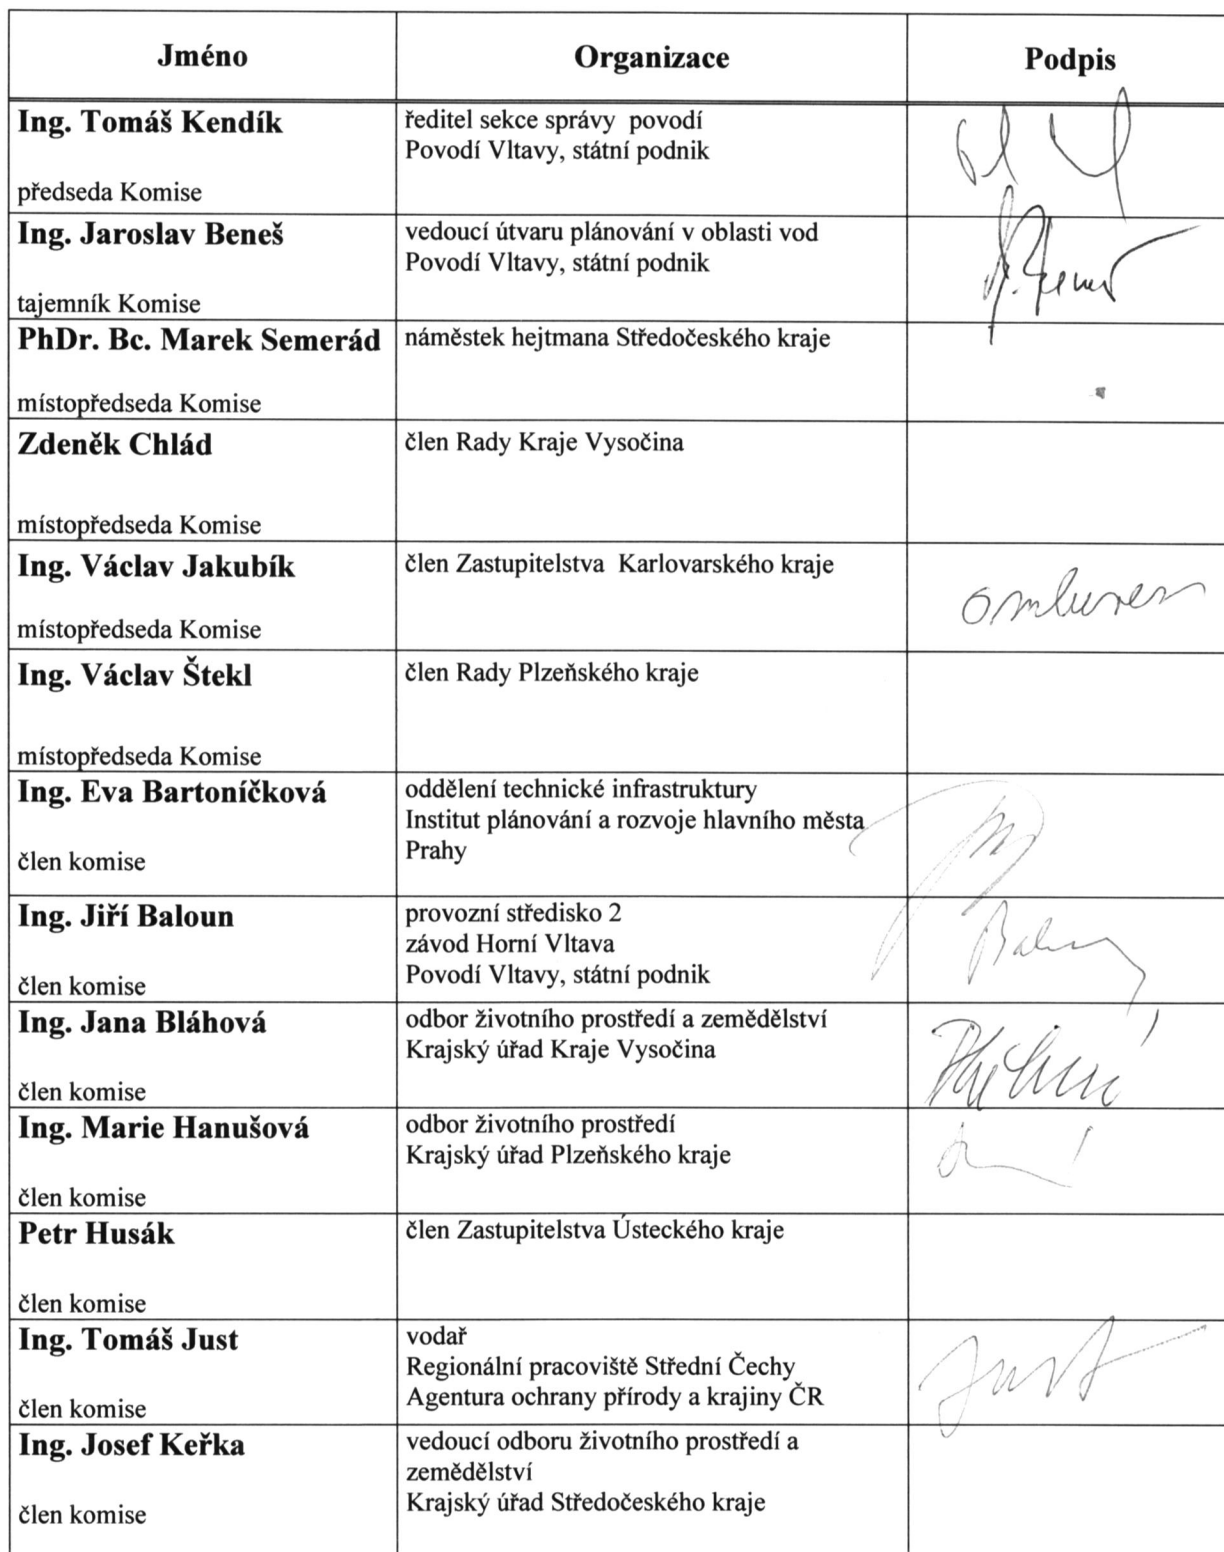 Jméno Organizace Podpis
Ing. Tomáš Kendík
předseda Komise
ředitel sekce správy povodí
Povodí Vltavy, státní podnik
Ing. Jaroslav Beneš
tajemník Komise
vedoucí útvaru plánování v oblasti vod
Povodí Vltavy, státní podnik
PhDr. Bc. Marek Semerád
místopředseda Komise
náměstek hejtmana Středočeského kraje
Zdeněk Chlád
místopředseda Komise
člen Rady Kraje Vysočina
Ing. Václav Jakubík
místopředseda Komise
člen Zastupitelstva Karlovarského kraje
Ing. Václav Štekl
místopředseda Komise
člen Rady Plzeňského kraje
Ing. Eva Bartoníčková
člen komise
oddělení technické infrastruktury
Institut plánování a rozvoje hlavního města
Prahy
Ing. Jiří Baloun
člen komise
provozní středisko 2
závod Horní Vltava
Povodí Vltavy, státní podnik
Ing. Jana Bláhová
člen komise
odbor životního prostředí a zemědělství
Krajský úřad Kraje Vysočina
Ing. Marie Hanušová
člen komise
odbor životního prostředí
Krajský úřad Plzeňského kraje
Petr Husák
člen komise
člen Zastupitelstva Ústeckého kraje
Ing. Tomáš Just
člen komise
vodař
Regionální pracoviště Střední Čechy
Agentura ochrany přírody a krajiny ČR
Just
Ing. Josef Keřka
člen komise
vedoucí odboru životního prostředí a
zemědělství
Krajský úřad Středočeského kraje